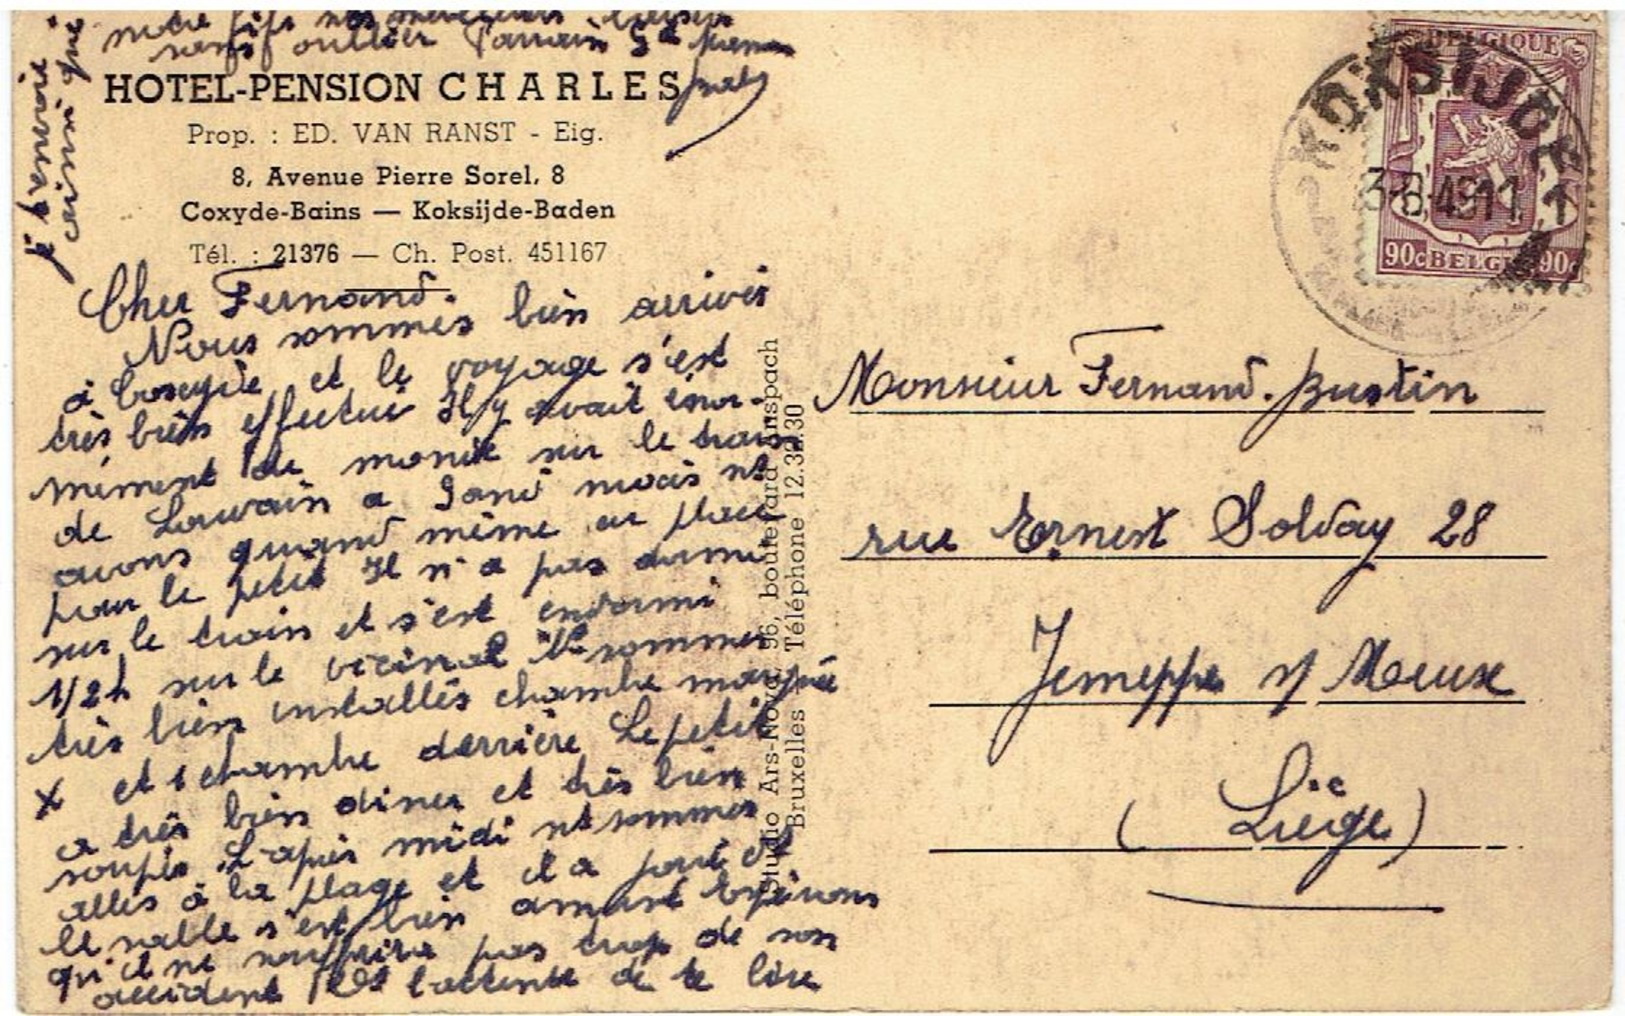 HOTEL-PENSION CHARLES
Prop. : ED. VAN RANST - Eig.
8, Avenue Pierre Sorel, 8
Coxyde-Bains — Koksijde-Baden
Tél. : 21376 — Ch. Post. 451167
Cher Fernand.
Nous sommes bien arrivés
à Coxyde et le voyage s'est
très bien effectué Il y avait énor-
mément de monde sur le train
de Louvain a Gand mais ns
avons quand même eu place
pour le petit Il n'a pas dormi
sur le train et s'est endormi
1/2 h sur le vicinal Ns sommes
très bien installés chambre marquée
X et 1 chambre derrière Le petit
a très bien diner et très bien
soupés L'après midi ns sommes
allés à la plage et il a joué et
le sable s'est bien amusé Espérons
qu'il ne souffrira pas trop de son
accident l'attente de te lire
je t'envoie
ainsi que
notre fifi nos meilleurs
sans oublier Parrain
Studio Ars-Nova, 96, boulevard Anspach
Bruxelles Téléphone 12.32.30
BELGIQUE
90c BELGIE 90c
KOKSIJDE 1
3-8-49 11
Monsieur Fernand. Bustin
rue Ernest Solvay 28
Jemeppe s/ Meuse
(Liège)